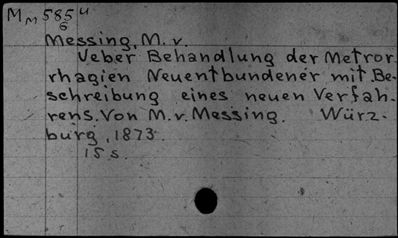 Mm 585 u
6
Messing, M. v.
Ueber Behandlung der Metror-
rhagien Neuentbundener mit Be-
schreibung eines neuen Verfah-
rens. Von M. v. Messing. Würz-
burg, 1873.
15 s.